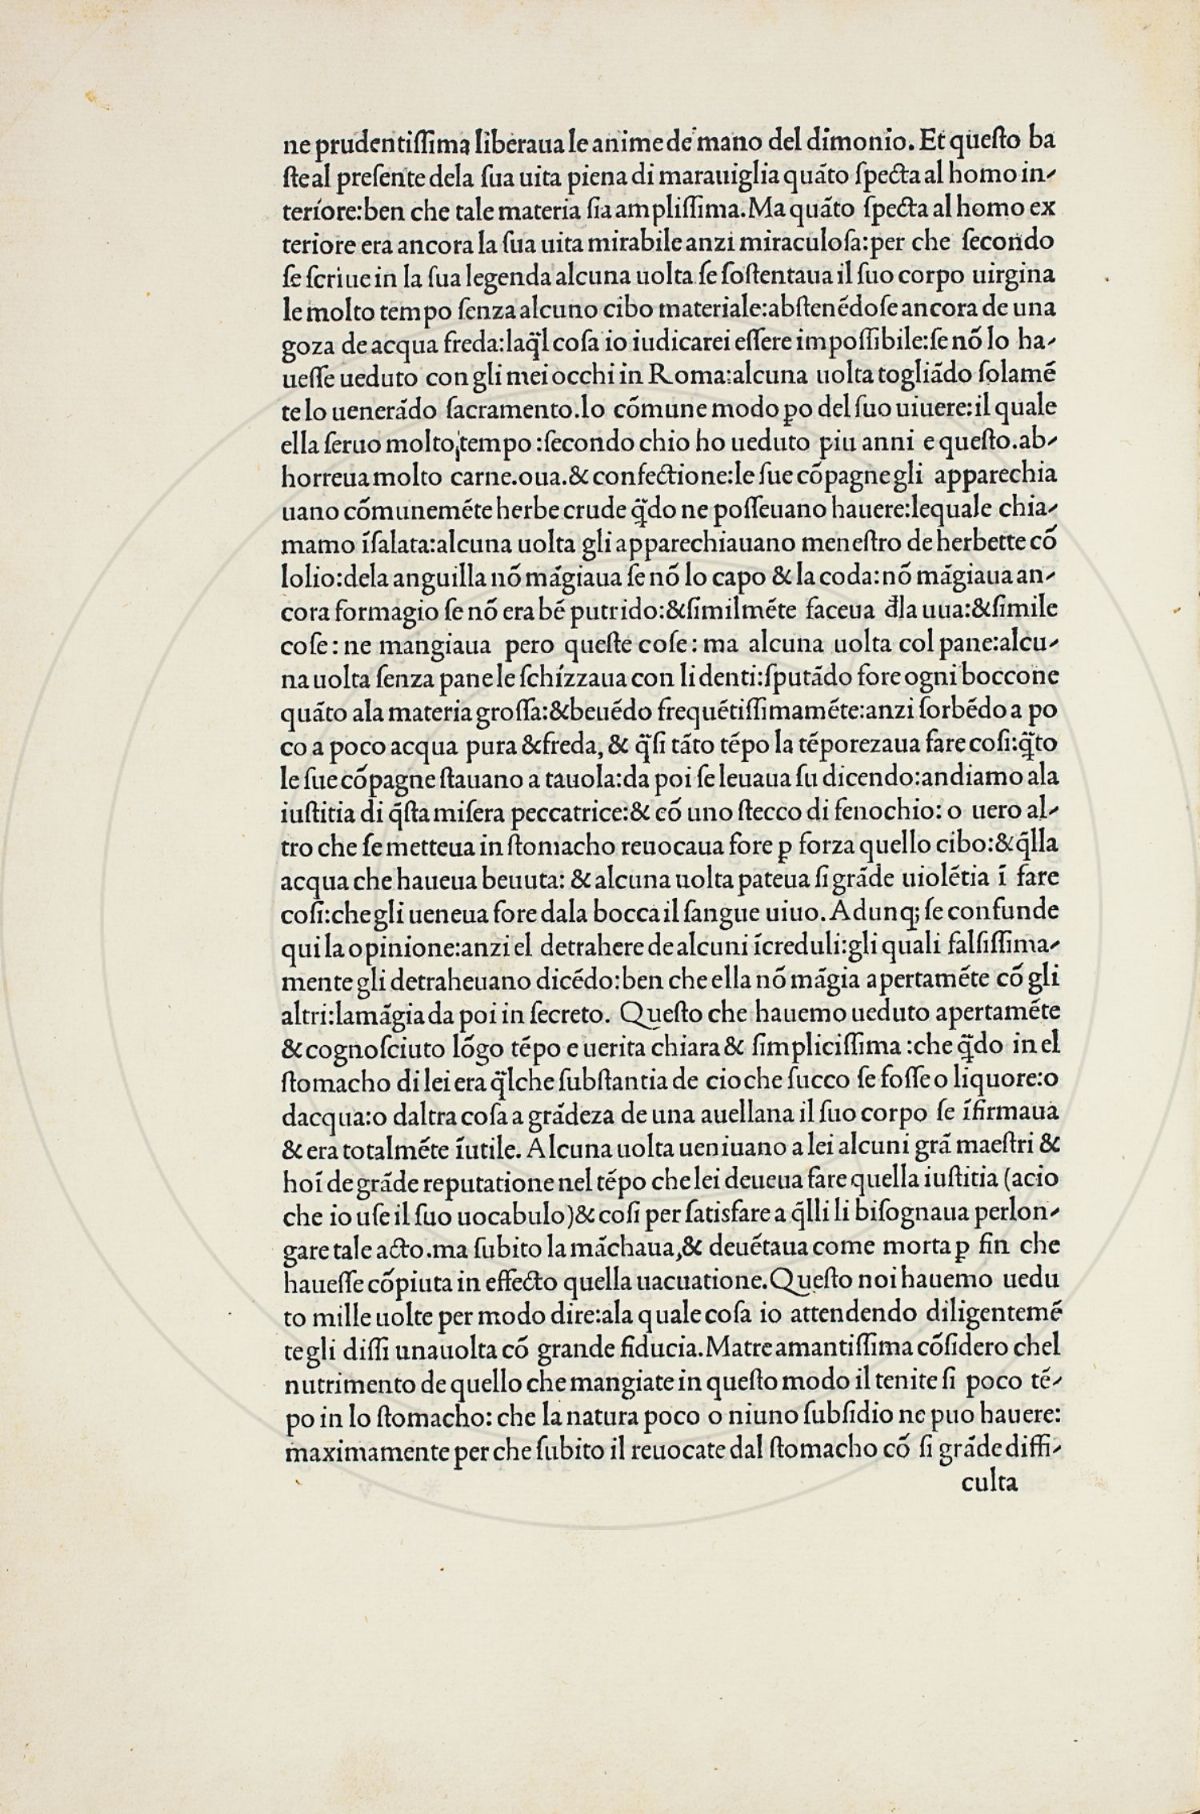 ne prudentiſſima liberaua le anime de mano del dimonio. Et queſto ba
ſte al preſente dela ſua uita piena di marauiglia quãto ſpecta al homo in-
teriore:ben che tale materia ſia ampliſſima. Ma quãto ſpecta al homo ex
teriore era ancora la ſua uita mirabile anzi miraculoſa:per che ſecondo
ſe ſcriue in la ſua legenda alcuna uolta ſe ſoſtentaua il ſuo corpo uirgina
le molto tempo ſenza alcuno cibo materiale:abſtenẽdoſe ancora de una
goza de acqua freda:laq̃l coſa io iudicarei eſſere impoſſibile:ſe nõ lo ha-
ueſſe ueduto con gli mei occhi in Roma:alcuna uolta togliãdo ſolamẽ
te lo uenerãdo ſacramento.lo cõmune modo ꝑo del ſuo uiuere:il quale
ella ſeruo molto tempo :ſecondo chio ho ueduto piu anni e queſto.ab-
horreua molto carne.oua.& confectione:le ſue cõpagne gli apparechia
uano cõmunemẽte herbe crude q̃do ne poſſeuano hauere:lequale chia-
mamo ĩſalata:alcuna uolta gli apparechiauano meneſtro de herbette cõ
lolio:dela anguilla nõ mãgiaua ſe nõ lo capo & la coda:nõ mãgiaua an-
cora formagio ſe nõ era bẽ putrido:&ſimilmẽte faceua đla uua:&ſimile
coſe: ne mangiaua pero queſte coſe: ma alcuna uolta col pane:alcu-
na uolta ſenza pane le ſchizzaua con li denti:ſputãdo fore ogni boccone
quãto ala materia groſſa:&beuẽdo frequẽtiſſimamẽte:anzi ſorbẽdo a po
co a poco acqua pura &freda, & q̃ſi tãto tẽpo la tẽporezaua fare coſi:q̃to
le ſue cõpagne ſtauano a tauola:da poi ſe leuaua ſu dicendo:andiamo ala
iuſtitia di q̃ſta miſera peccatrice:& cõ uno ſtecco di fenochio: o uero al-
tro che ſe metteua in ſtomacho reuocaua fore ꝑ forza quello cibo:&q̃lla
acqua che haueua beuuta: & alcuna uolta pateua ſi grãde uiolẽtia ĩ fare
coſi:che gli ueneua fore dala bocca il ſangue uiuo. Adunq; ſe confunde
qui la opinione:anzi el detrahere de alcuni ĩcreduli:gli quali falſiſſima-
mente gli detraheuano dicẽdo:ben che ella nõ mãgia apertamẽte cõ gli
altri:la mãgia da poi in ſecreto. Queſto che hauemo ueduto apertamẽte
& cognoſciuto lõgo tẽpo e uerita chiara & ſimpliciſſima :che q̃do in el
ſtomacho di lei era q̃lche ſubſtantia de cio che ſucco ſe foſſe o liquore:o
dacqua:o daltra coſa a grãdeza de una auellana il ſuo corpo ſe ĩfirmaua
& era totalmẽte ĩutile. Alcuna uolta ueniuano a lei alcuni grã maeſtri &
hoĩ de grãde reputatione nel tẽpo che lei deueua fare quella iuſtitia (acio
che io uſe il ſuo uocabulo)& coſi per ſatisfare a q̃lli li biſognaua perlon-
gare tale acto.ma ſubito la mãchaua,& deuẽtaua come morta ꝑ fin che
haueſſe cõpiuta in effecto quella uacuatione. Queſto noi hauemo uedu
to mille uolte per modo dire:ala quale coſa io attendendo diligentemẽ
te gli diſſi una uolta cõ grande fiducia. Matre amantiſſima cõſidero chel
nutrimento de quello che mangiate in queſto modo il tenite ſi poco tẽ-
po in lo ſtomacho: che la natura poco o niuno ſubſidio ne puo hauere:
maximamente per che ſubito il reuocate dal ſtomacho cõ ſi grãde diffi-
culta